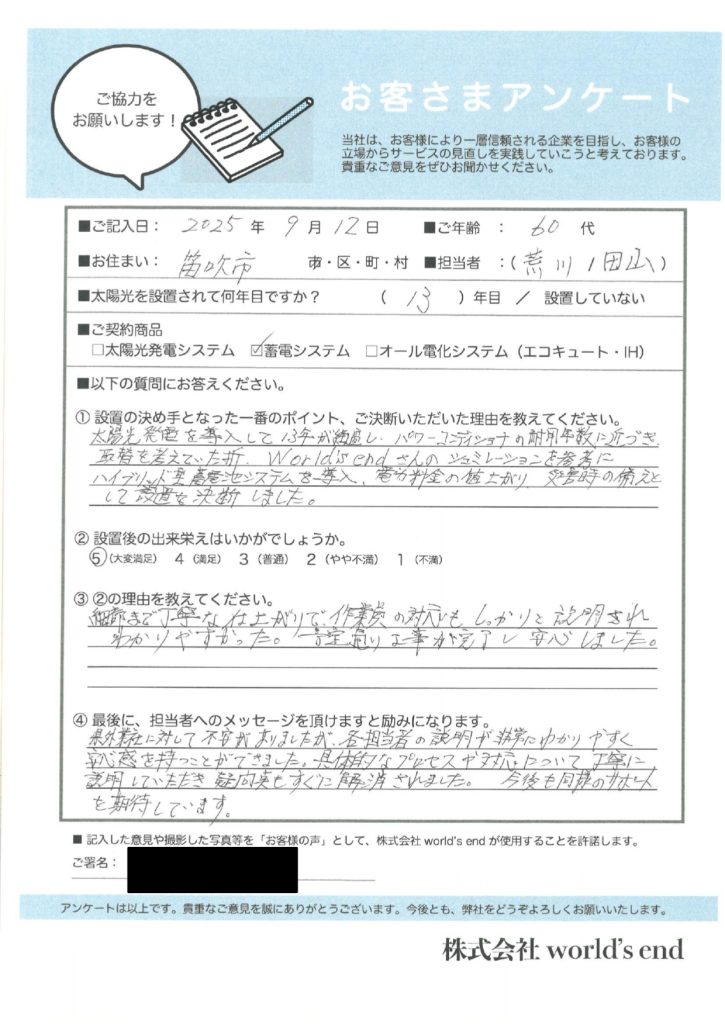 ご協力を
お願いします！
お客さまアンケート
当社は、お客様により一層信頼される企業を目指し、お客様の
立場からサービスの見直しを実践していこうと考えております。
貴重なご意見をぜひお聞かせください。
■ご記入日： 2025 年 9 月 12 日 ■ご年齢 ： 60 代
■お住まい： 笛吹市 市・区・町・村 ■担当者 ：（荒川 / 田山）
■太陽光を設置されて何年目ですか？ （ 13 ）年目 ／ 設置していない
■ご契約商品
□太陽光発電システム ☑蓄電システム □オール電化システム（エコキュート・IH）
■以下の質問にお答えください。
① 設置の決め手となった一番のポイント、ご決断いただいた理由を教えてください。
太陽光発電を導入して13年が経過し、パワーコンディショナの耐用年数に近づき、
取替を考えていた折、World's endさんのシュミレーションを参考に
ハイブリッド型蓄電池システムを導入、電力料金の値上がり、災害時の備えと
して設置を決断しました。
② 設置後の出来栄えはいかがでしょうか。
⑤（大変満足） 4（満足） 3（普通） 2（やや不満） 1（不満）
③ ②の理由を教えてください。
細部まで丁寧な仕上がりで、作業員の対応もしっかりと説明され
わかりやすかった。予定通り工事が完了し安心しました。
④ 最後に、担当者へのメッセージを頂けますと励みになります。
県外業社に対して不安がありましたが、各担当者の説明が非常にわかりやすく
安心感を持つことができました。具体的なプロセスや対応について丁寧に
説明していただき疑問点もすぐに解消されました。 今後も同様のサポート
を期待しています。
■ 記入した意見や撮影した写真等を「お客様の声」として、株式会社 world's end が使用することを許諾します。
ご署名：
アンケートは以上です。貴重なご意見を誠にありがとうございます。今後とも、弊社をどうぞよろしくお願いいたします。
株式会社 world's end